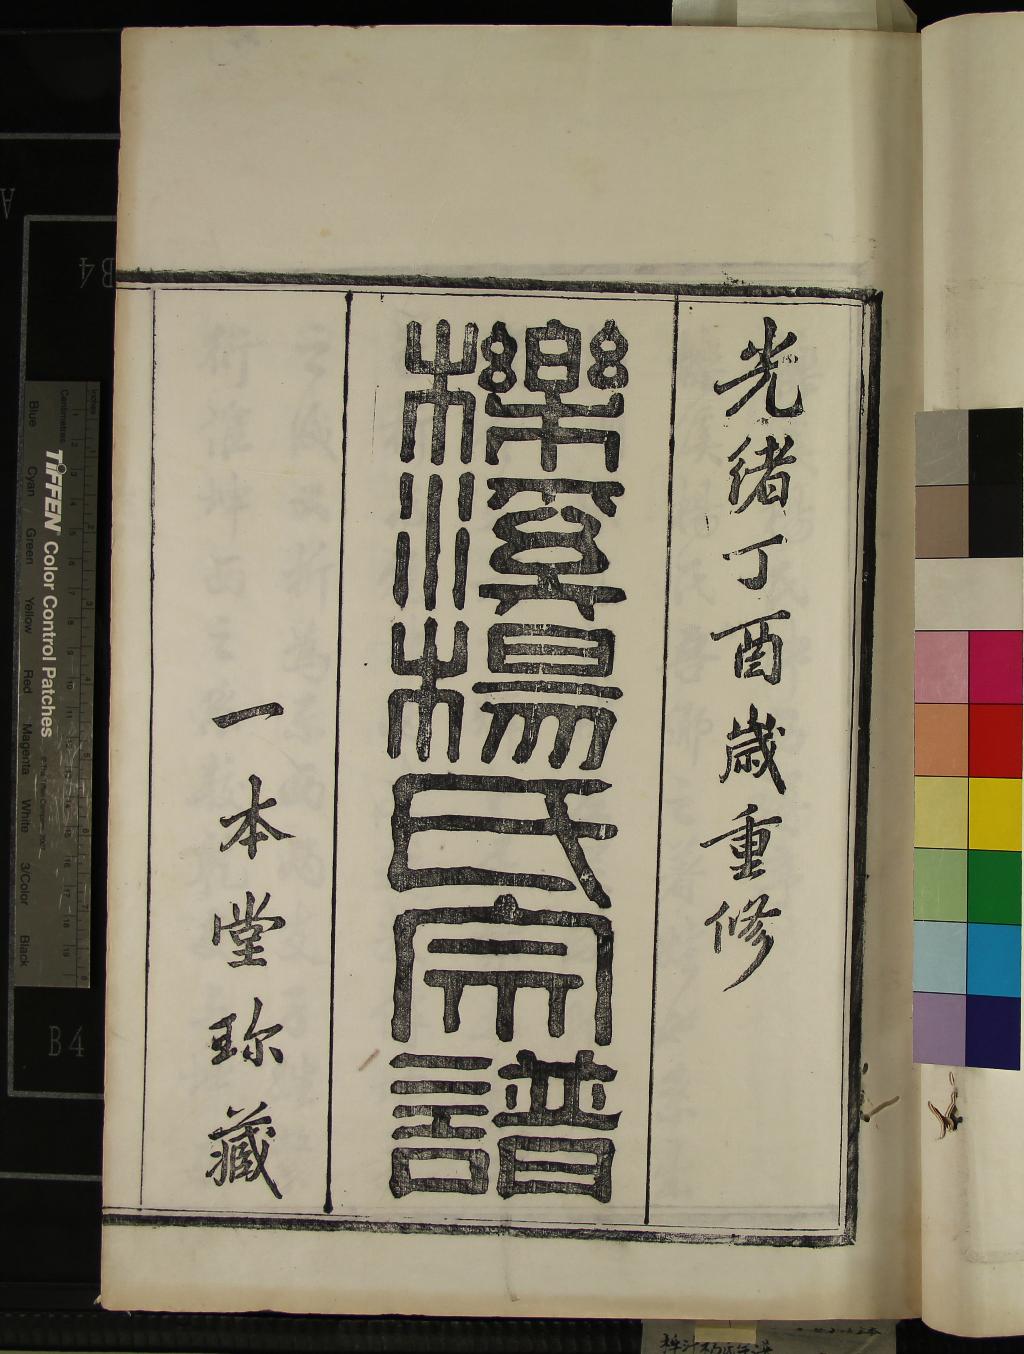 光緒丁酉歲重修
櫟溪楊氏宗譜
一本堂珎藏
TIFFEN Color Control Patches
© The Tiffen Company, 2007
Inches
Centimetres
Blue Cyan Green Yellow Red Magenta White 3/Color Black
A
B4
B4